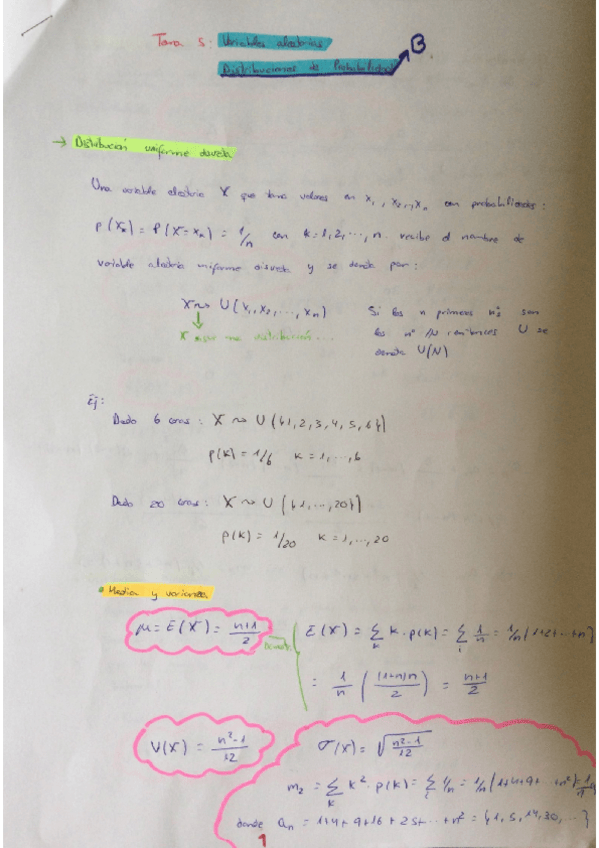 Tema 5: Variables aleatorias
Distribuciones de Probabilidad B
→ Distribución uniforme discreta
Una variable aleatoria X que toma valores en x₁, x₂, ..., xₙ con probabilidades:
p(xₖ) = P(X = xₖ) = 1/n con k = 1, 2, ..., n recibe el nombre de
variable aleatoria uniforme discreta y se denota por:
X ~> U(x₁, x₂, ..., xₙ)
X sigue una distribución...
Si los n primeros nºs son
los nº N entonces U se
denota U(N)
Ej:
Dado 6 caras: X ~> U({1, 2, 3, 4, 5, 6})
p(k) = 1/6 k = 1, ..., 6
Dado 20 caras: X ~> U({1, ..., 20})
p(k) = 1/20 k = 1, ..., 20
• Media y varianza
μ = E(X) = (n+1)/2
E(X) = Σₖ k · p(k) = Σᵢ 1/n = 1/n (1+2+...+n)
= 1/n ((1+n)n/2) = (n+1)/2
V(X) = (n²-1)/12
σ(X) = √((n²-1)/12)
m₂ = Σₖ k² · p(k) = Σᵢ 1/n = 1/n (1+4+9+...+n²) =
donde aₙ = 1+4+9+16+25+...+n² = {1, 5, 14, 30, ...}
1